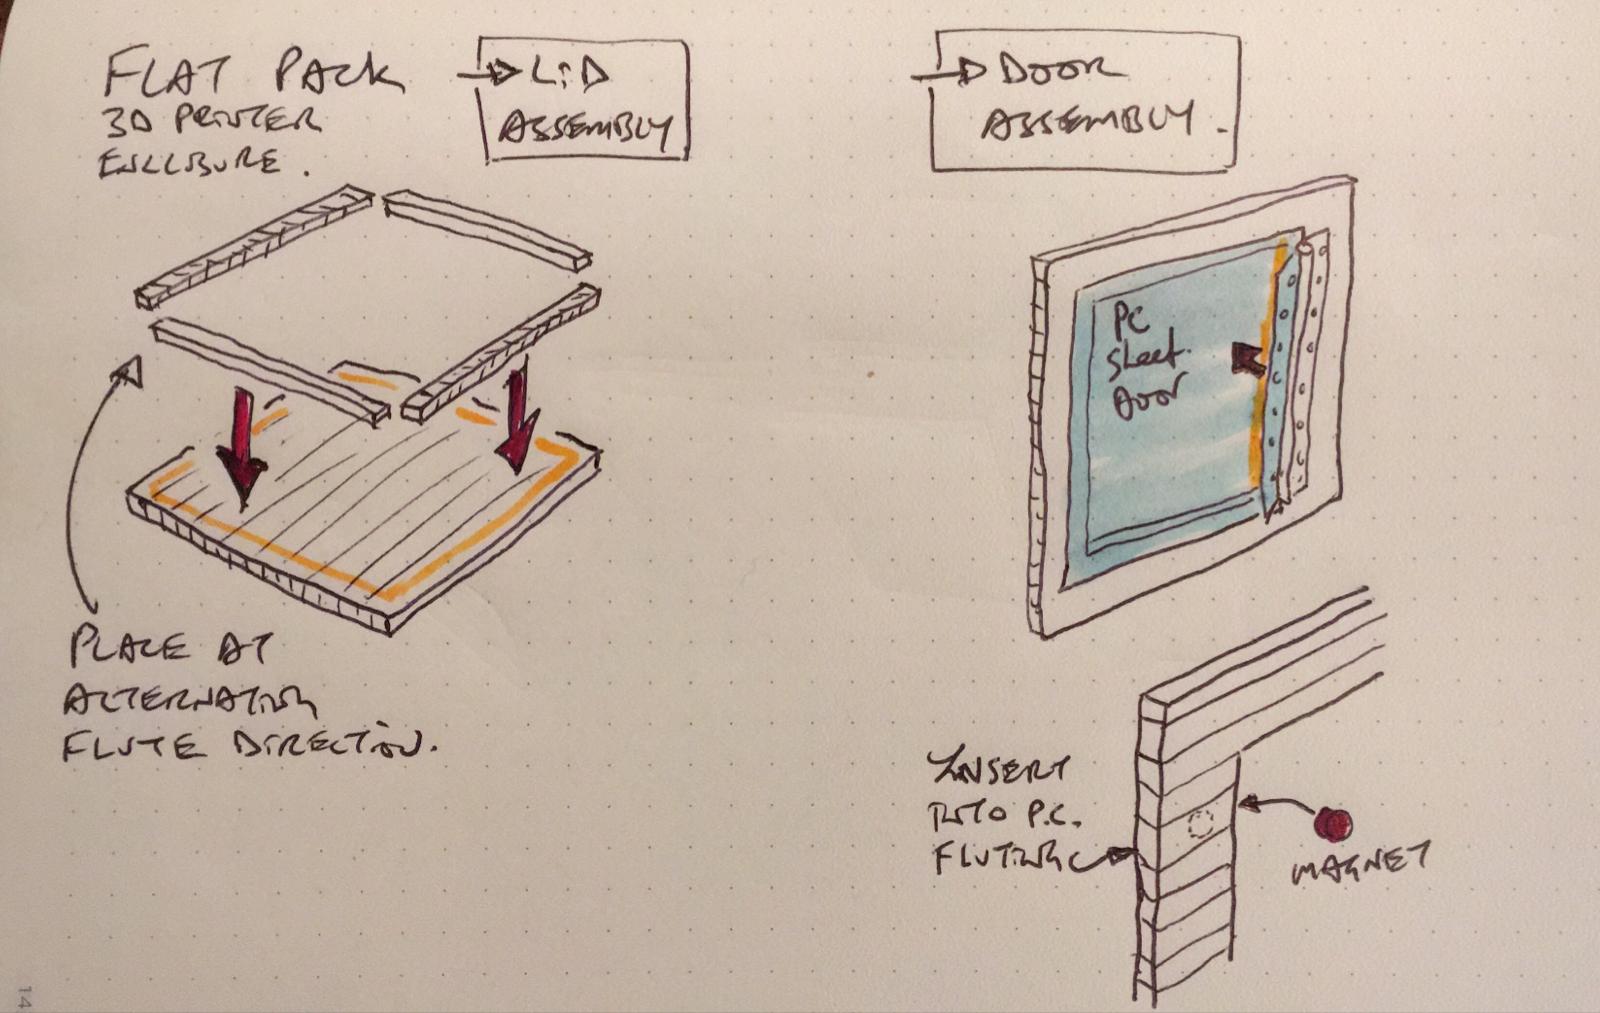 FLAT PACK
3D PRINTER
ENCLOSURE.
LID
ASSEMBLY
DOOR
ASSEMBLY.
PC
Sheet.
Door
PLACE AT
ALTERNATING
FLUTE DIRECTION.
INSERT
INTO P.C.
FLUTING
MAGNET
14